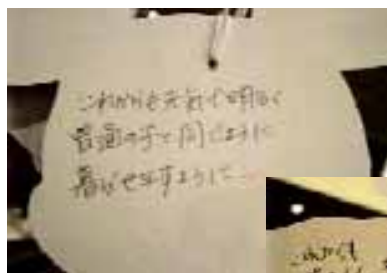 これからも元気で明るく
普通の子と同じように
暮らせますように…
これからも